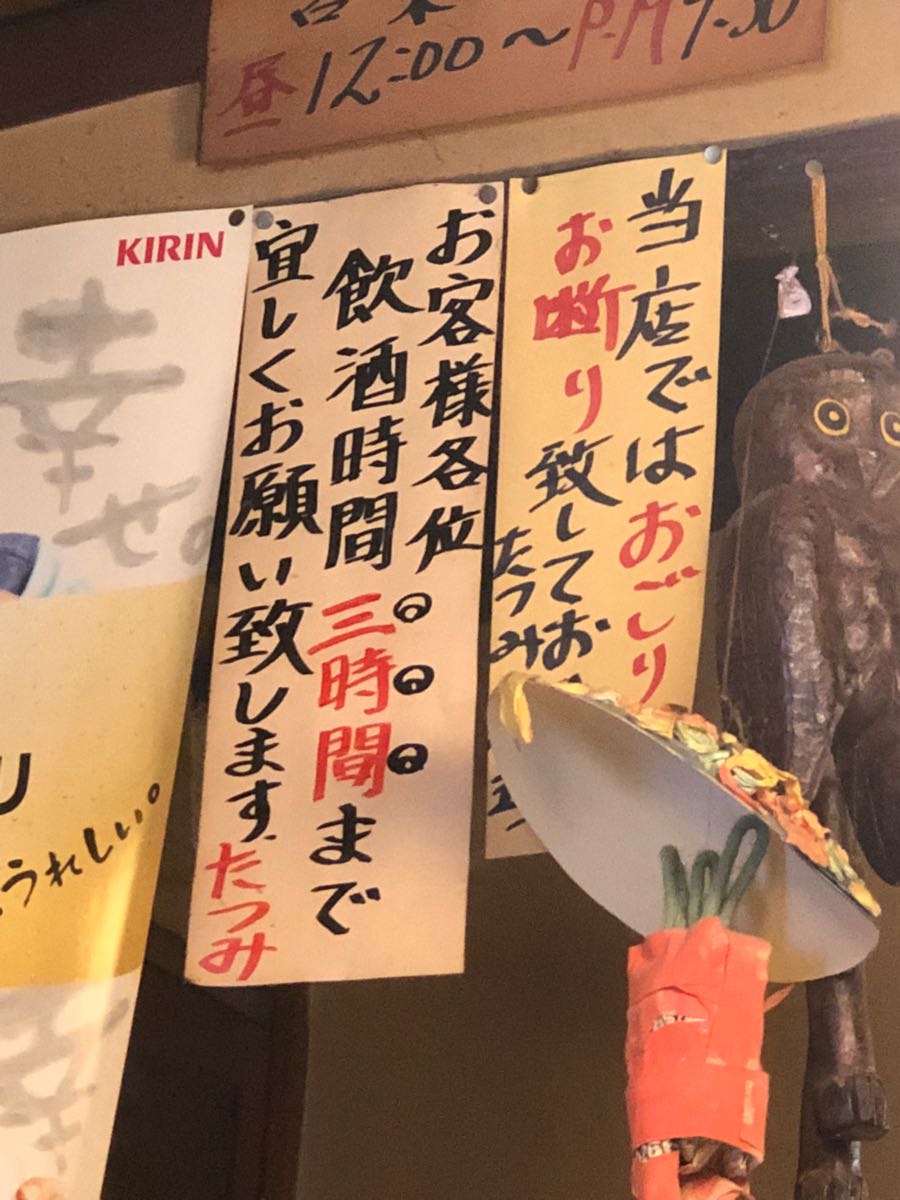 昼12:00～P.M7:30
当店ではおごり
お断り致してお
たつみ
お客様各位
飲酒時間三時間まで
宜しくお願い致します。
たつみ
KIRIN
幸
せの
うれしい。